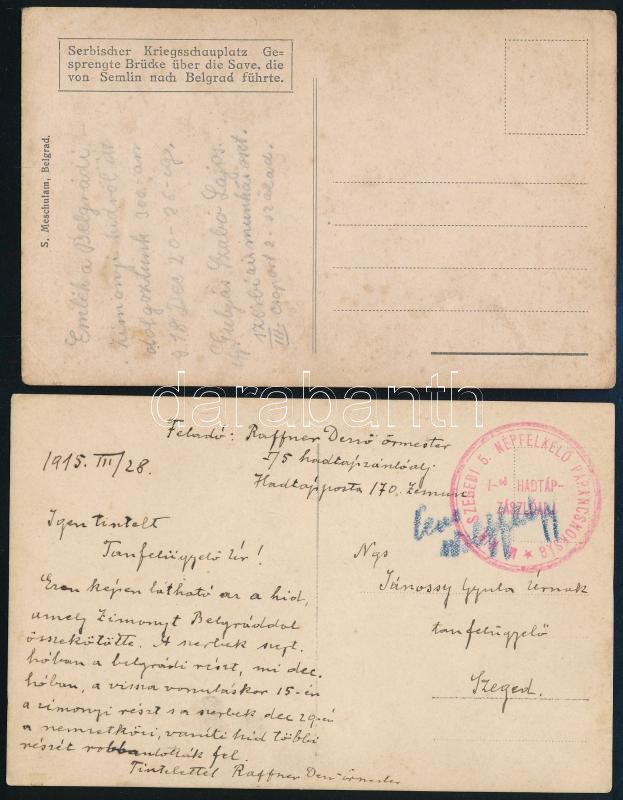 Serbischer Kriegsschauplatz Ge-
sprengte Brücke über die Save, die
von Semlin nach Belgrad führte.
S. Meschulam, Belgrad.
Emlék a Belgrádi
Zimonyi hidról itt
dolgoztunk
918 Dec 20-25-ig.
Gulyás Szabó Lajos
szerbiai munkás oszt.
III. csoport 2. század.
darabanth
Feladó: Raffner Dezső őrmester
I/5 hadtápzászlóalj
Hadtápposta 170. Zemun
1915. III/28.
Igen tisztelt
Tanfelügyelő Úr!
Ezen képen látható az a hid,
amely Zimonyt Belgráddal
összekötötte. A szerbek szept.
hóban a belgrádi részt, mi dec.
hóban, a vissza vonuláskor 15-én
a zimonyi részt s a szerbek dec 29-én
a nemzetközi, vasúti hid többi
részét robbantották fel.
Tisztelettel Raffner Dezső őrmester
SZEGEDI 5. NÉPFELKELŐ PARANCSNOKSÁG
I-ső HADTÁP-
ZÁSZLÓALJ
Ngs
Jánossy Gyula Úrnak
tanfelügyelő
Szeged.